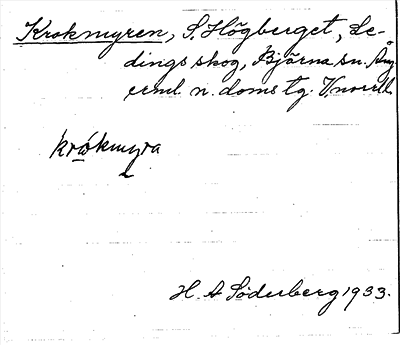 Krokmyren, S. Högberget, Le-
dings skog, Björna sn. Ång
erml. n. doms tg. V.norrl.
krókmyra
H. A Söderberg 1933.